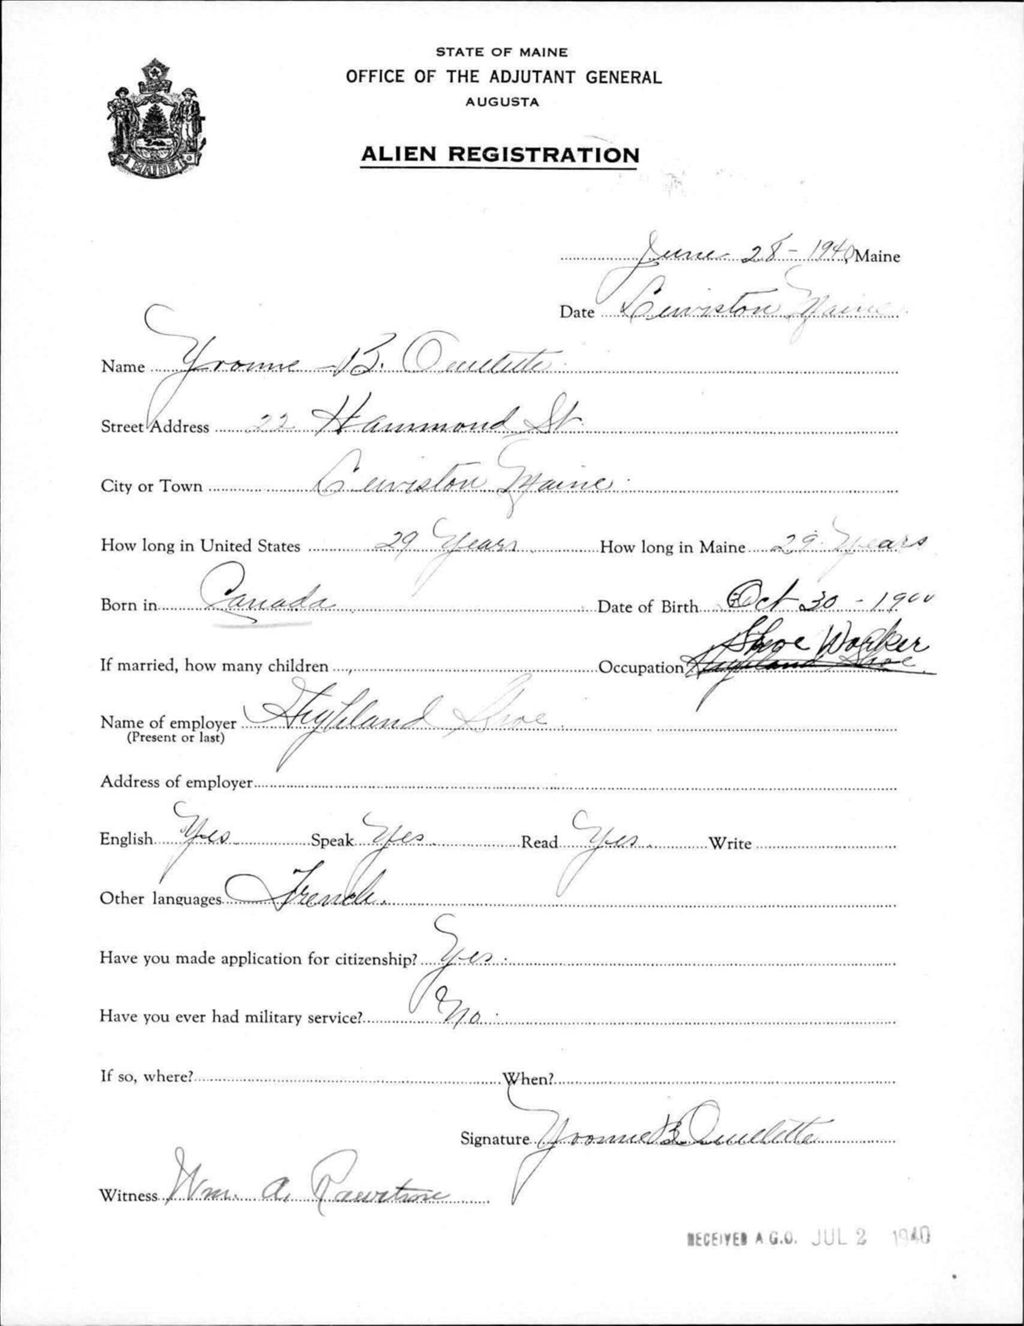 STATE OF MAINE
OFFICE OF THE ADJUTANT GENERAL
AUGUSTA
ALIEN REGISTRATION
MAINE
June 28 - 1940 Maine
Date Lewiston Maine
Name Yvonne B. Ouellette
Street Address 22 Hammond St
City or Town Lewiston Maine
How long in United States 29 Years How long in Maine 29 Years
Born in Canada Date of Birth Oct 30 - 1900
Shoe Worker
If married, how many children Occupation Highland Shoe
Name of employer Highland Shoe
(Present or last)
Address of employer
English Yes Speak Yes Read Yes Write
Other languages French
Have you made application for citizenship? Yes
Have you ever had military service? No
If so, where? When?
Signature Yvonne B Ouellette
Witness Wm. A.
RECEIVED A.G.O. JUL 2 1940